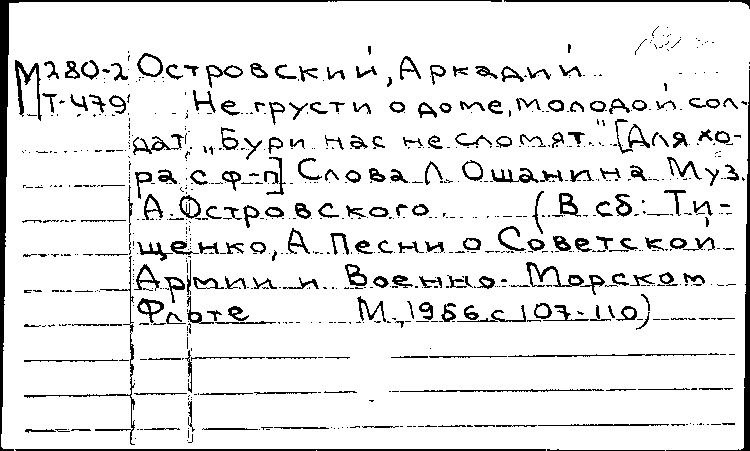 М280-2 Островский, Аркадий
Т-479 Не грусти о доме, молодой сол-
дат, „Бури нас не сломят." [Для хо-
ра с ф-п] Слова Л Ошанина Муз.
А. Островского. (В сб: Ти-
щенко, А Песни о Советской
Армии и Военно-Морском
Флоте М., 1956. с 107-110)